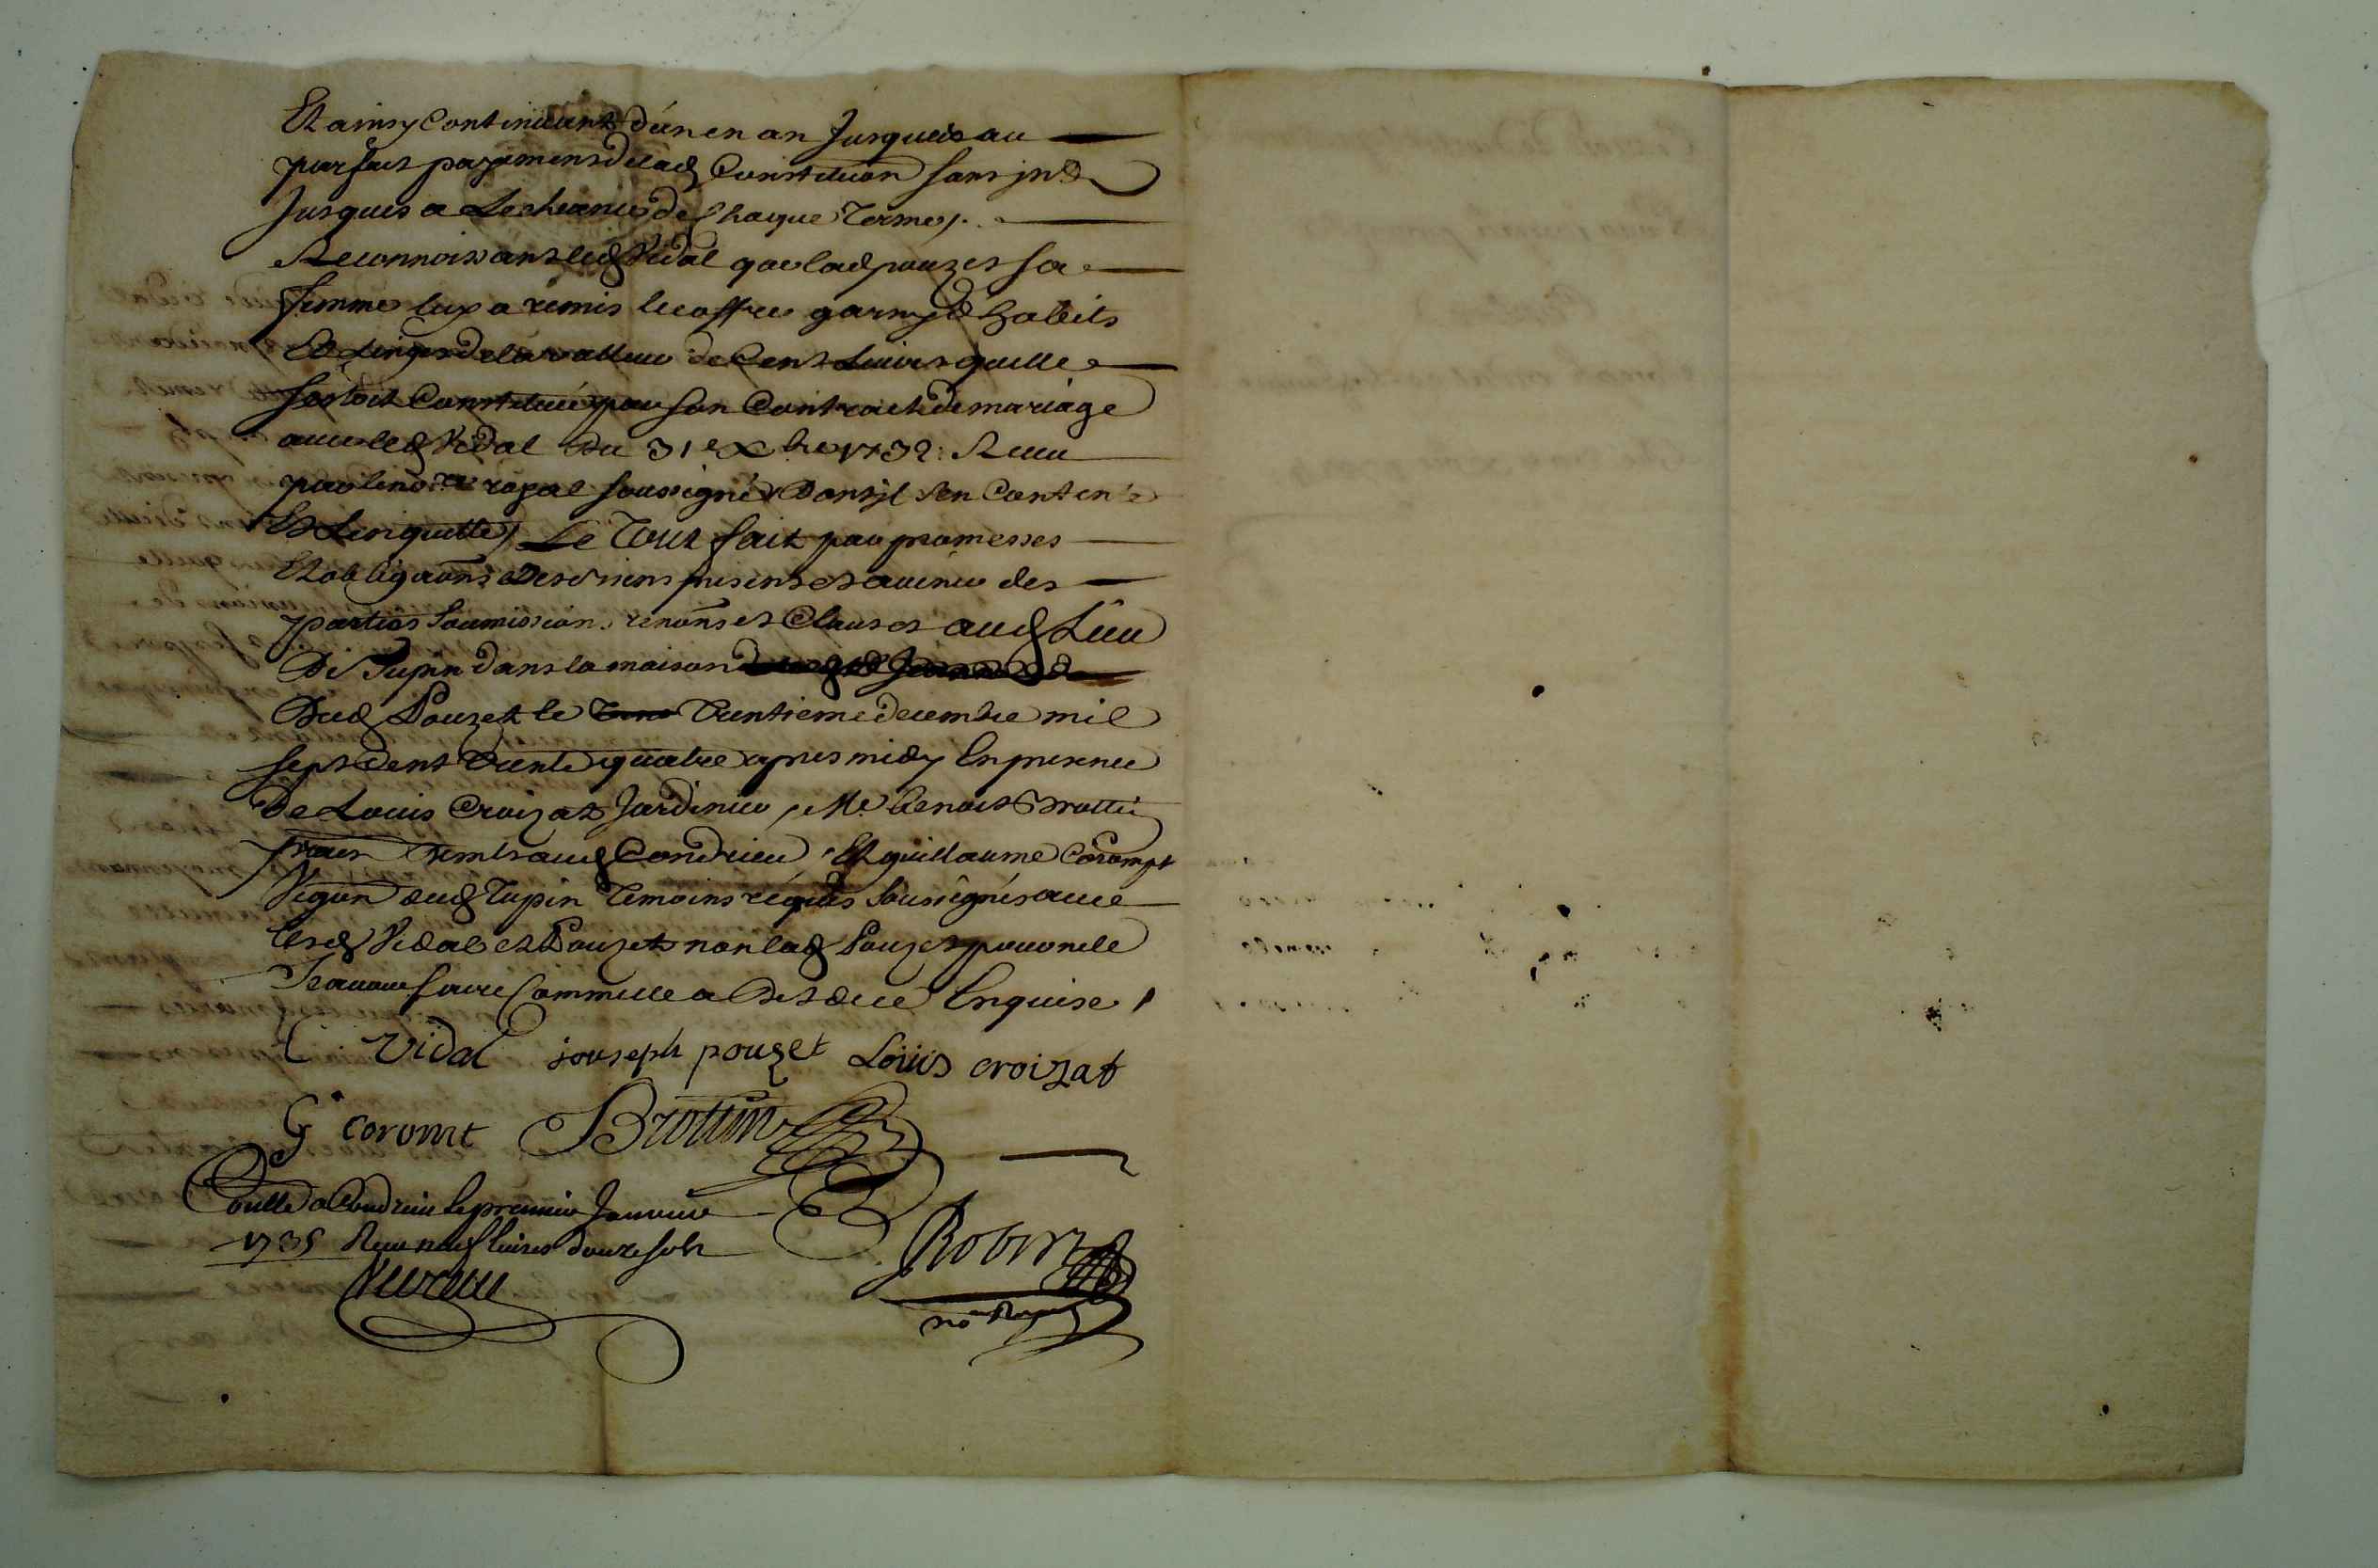 Et ainsy Continüant d'ún en an Jusques au
parfait payement de lad Constitution sans jnt
Jusques a Lecheance de Chaque Terme /.
Reconnoissant led Vidal que lad pouzet sa
femme luy a remis le coffre garny d'habits
Et Linges de la valleur de Cent Livres quelle
sestoit Constitué par son Contract de mariage
avec led Vidal du 31e Xbre 1732 Receu
par le no.re royal soussigné Dont jl s'en Contente
Et L'en quitte / Le Tout fait par promesses
Et obligaons Des biens presens et avenir des
parties Soumissions renons et Clauses aud Lieu
De Tupin dans la maison
Dud Pouzet le Trentieme decembre mil
sept Cent Trente quatre apres midy En presence
De Louis Croizat Jardinier, Me. Benoist Brottin
aud Condrieu, Et guillaume Corompt
Vigron dud Tupin Temoins requis Soussignés avec
lesd Vidal et Pouzet non lad Pouzet pour ne le
Scavoir faire Comme elle a Dit de ce Enquise /
Vidal jouseph pouzet Loüis croizat
G coromt Brottin
Conllé a Condrieu le premier Janvier
1735 Receu neuf livres douze sols
Robin
no Royal